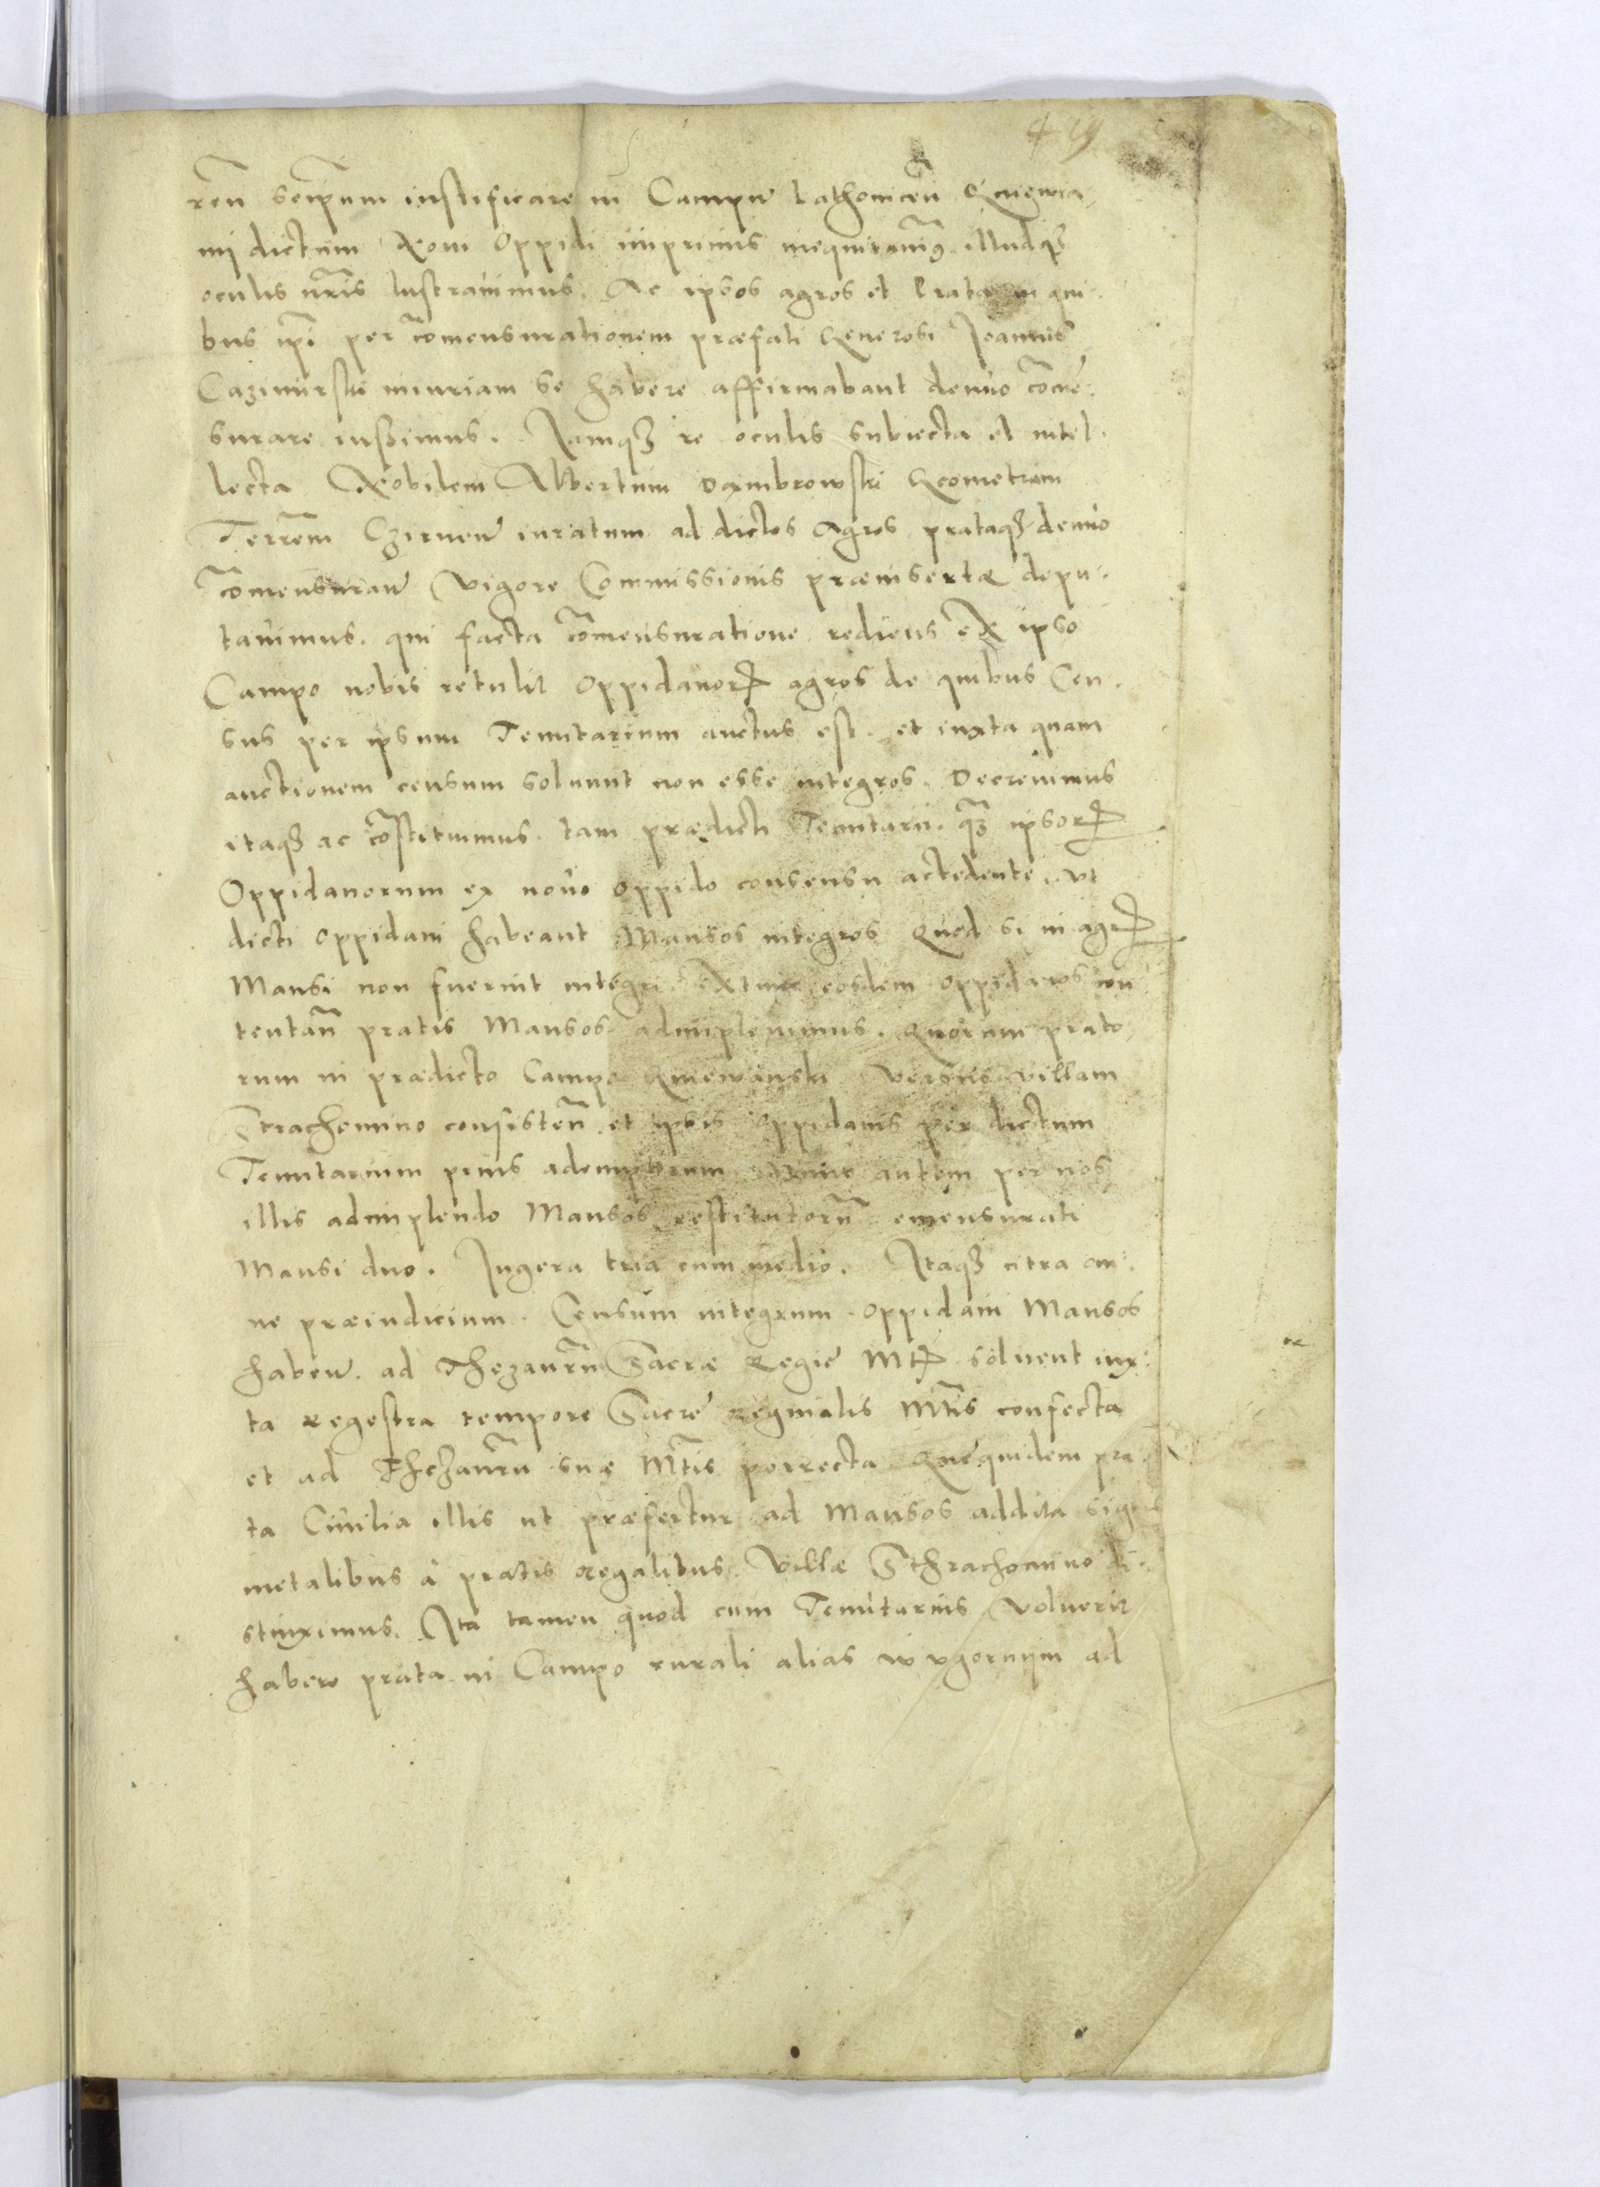 419
ren̄ seip̄um iustificare in Campū lathomcen̄ Kmewia
nj dictum Noui Oppidi imprimis inequitauim9 illudq3
oculis nr̄is lustrauimus. Ac ipsos agros et Prata in qui.
bus ip̄i per com̄ensurationem præfati Generosi Joannis
Cazimirski iniuriam se habere affirmabant denuo com̄e.
surare iussimus. Jamq3 re oculis subiecta et intel.
lecta Nobilem Albertum Dambrowski Geometram
Terrēm Czirnen̄ iuratum ad dictos Agros prataq3 denuo
com̄ensuran̄ Vigore Commissionis præinsertæ depu.
tauimus. qui facta com̄ensuratione rediens ex ipso
Campo nobis retulit Oppidanorꝝ agros de quibus Cen.
sus per ipsum Tenutarium auctus est. et iuxta quam
auctionem censum soluunt non esse integros. Decreuimus
itaq3 ac cōstituimus. tam prædicti Tenutarii. quā ipsorꝝ
Oppidanorum ex nouo oppido consensu accedente. vt
dicti oppidani habeant Mansos integros Quod si in agrꝝ
Mansi non fuerint integri. Extunc eosdem oppidanos con
tentan̄ pratis Mansos adimpleuimus. Quorum prato
rum in prædicto Campo Kmiewanski versus villam
Strachomino consisten̄. et ipsis oppidanis per dictum
Tenutarium prius ademptorum Nunc autem per nos
illis adimplendo Mansos restitutorū emensurati
Mansi duo. Jugera tria cum medio. Itaq3 citra om.
ne præiudicium. Censum integrum oppidani Mansos
haben̄. ad Thezaurū Sacræ Regie Mtꝝ soluent iux.
ta regestra tempore Sacre Reginalis Mt̄is confecta
et ad Thezaurū suæ Mt̄is porrecta Quequidem pra
ta Ciuilia illis ut præfertur ad Mansos addita signis
metalibus à pratis Regalibus Villæ Sthrachomino di
stinximus. Ita tamen quod cum Tenutarius voluerit
habere prata in Campo rurali alias w vgornijm ad